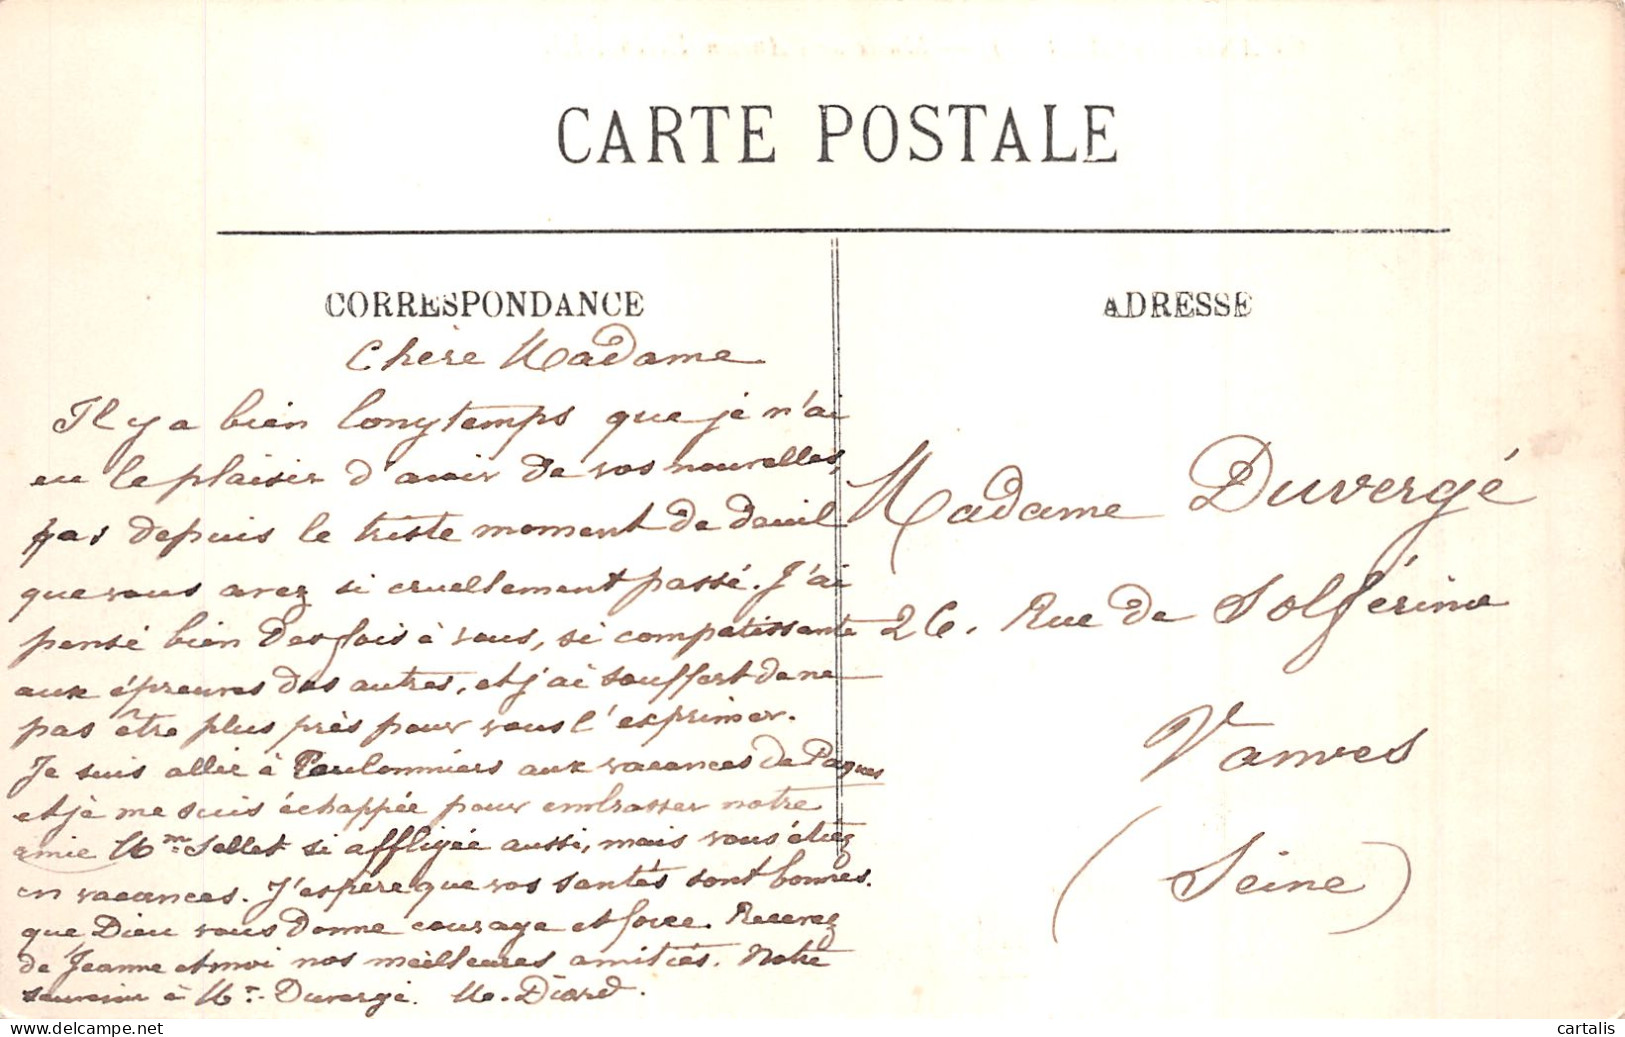 CARTE POSTALE
CORRESPONDANCE
Chère Madame
Il y a bien longtemps que je n'ai
eu le plaisir d'avoir de vos nouvelles,
pas depuis le triste moment de deuil
que vous avez si cruellement passé. J'ai
pensé bien des fois à vous, si compatissante
aux épreuves des autres, et j'ai souffert de ne
pas être plus près pour vous l'exprimer.
Je suis allée à aux vacances de Pâques
et je me suis échappée pour embrasser notre
amie Mme Sellet si affligée aussi, mais vous étiez
en vacances. J'espère que vos santés sont bonnes.
que Dieu vous donne courage et force. Recevez
de Jeanne et moi nos meilleures amitiés. Notre
souvenir à Mr. Duvergé. M.
ADRESSE
Madame Duvergé
26. Rue de Solférino
Vanves
(Seine)
cartalis